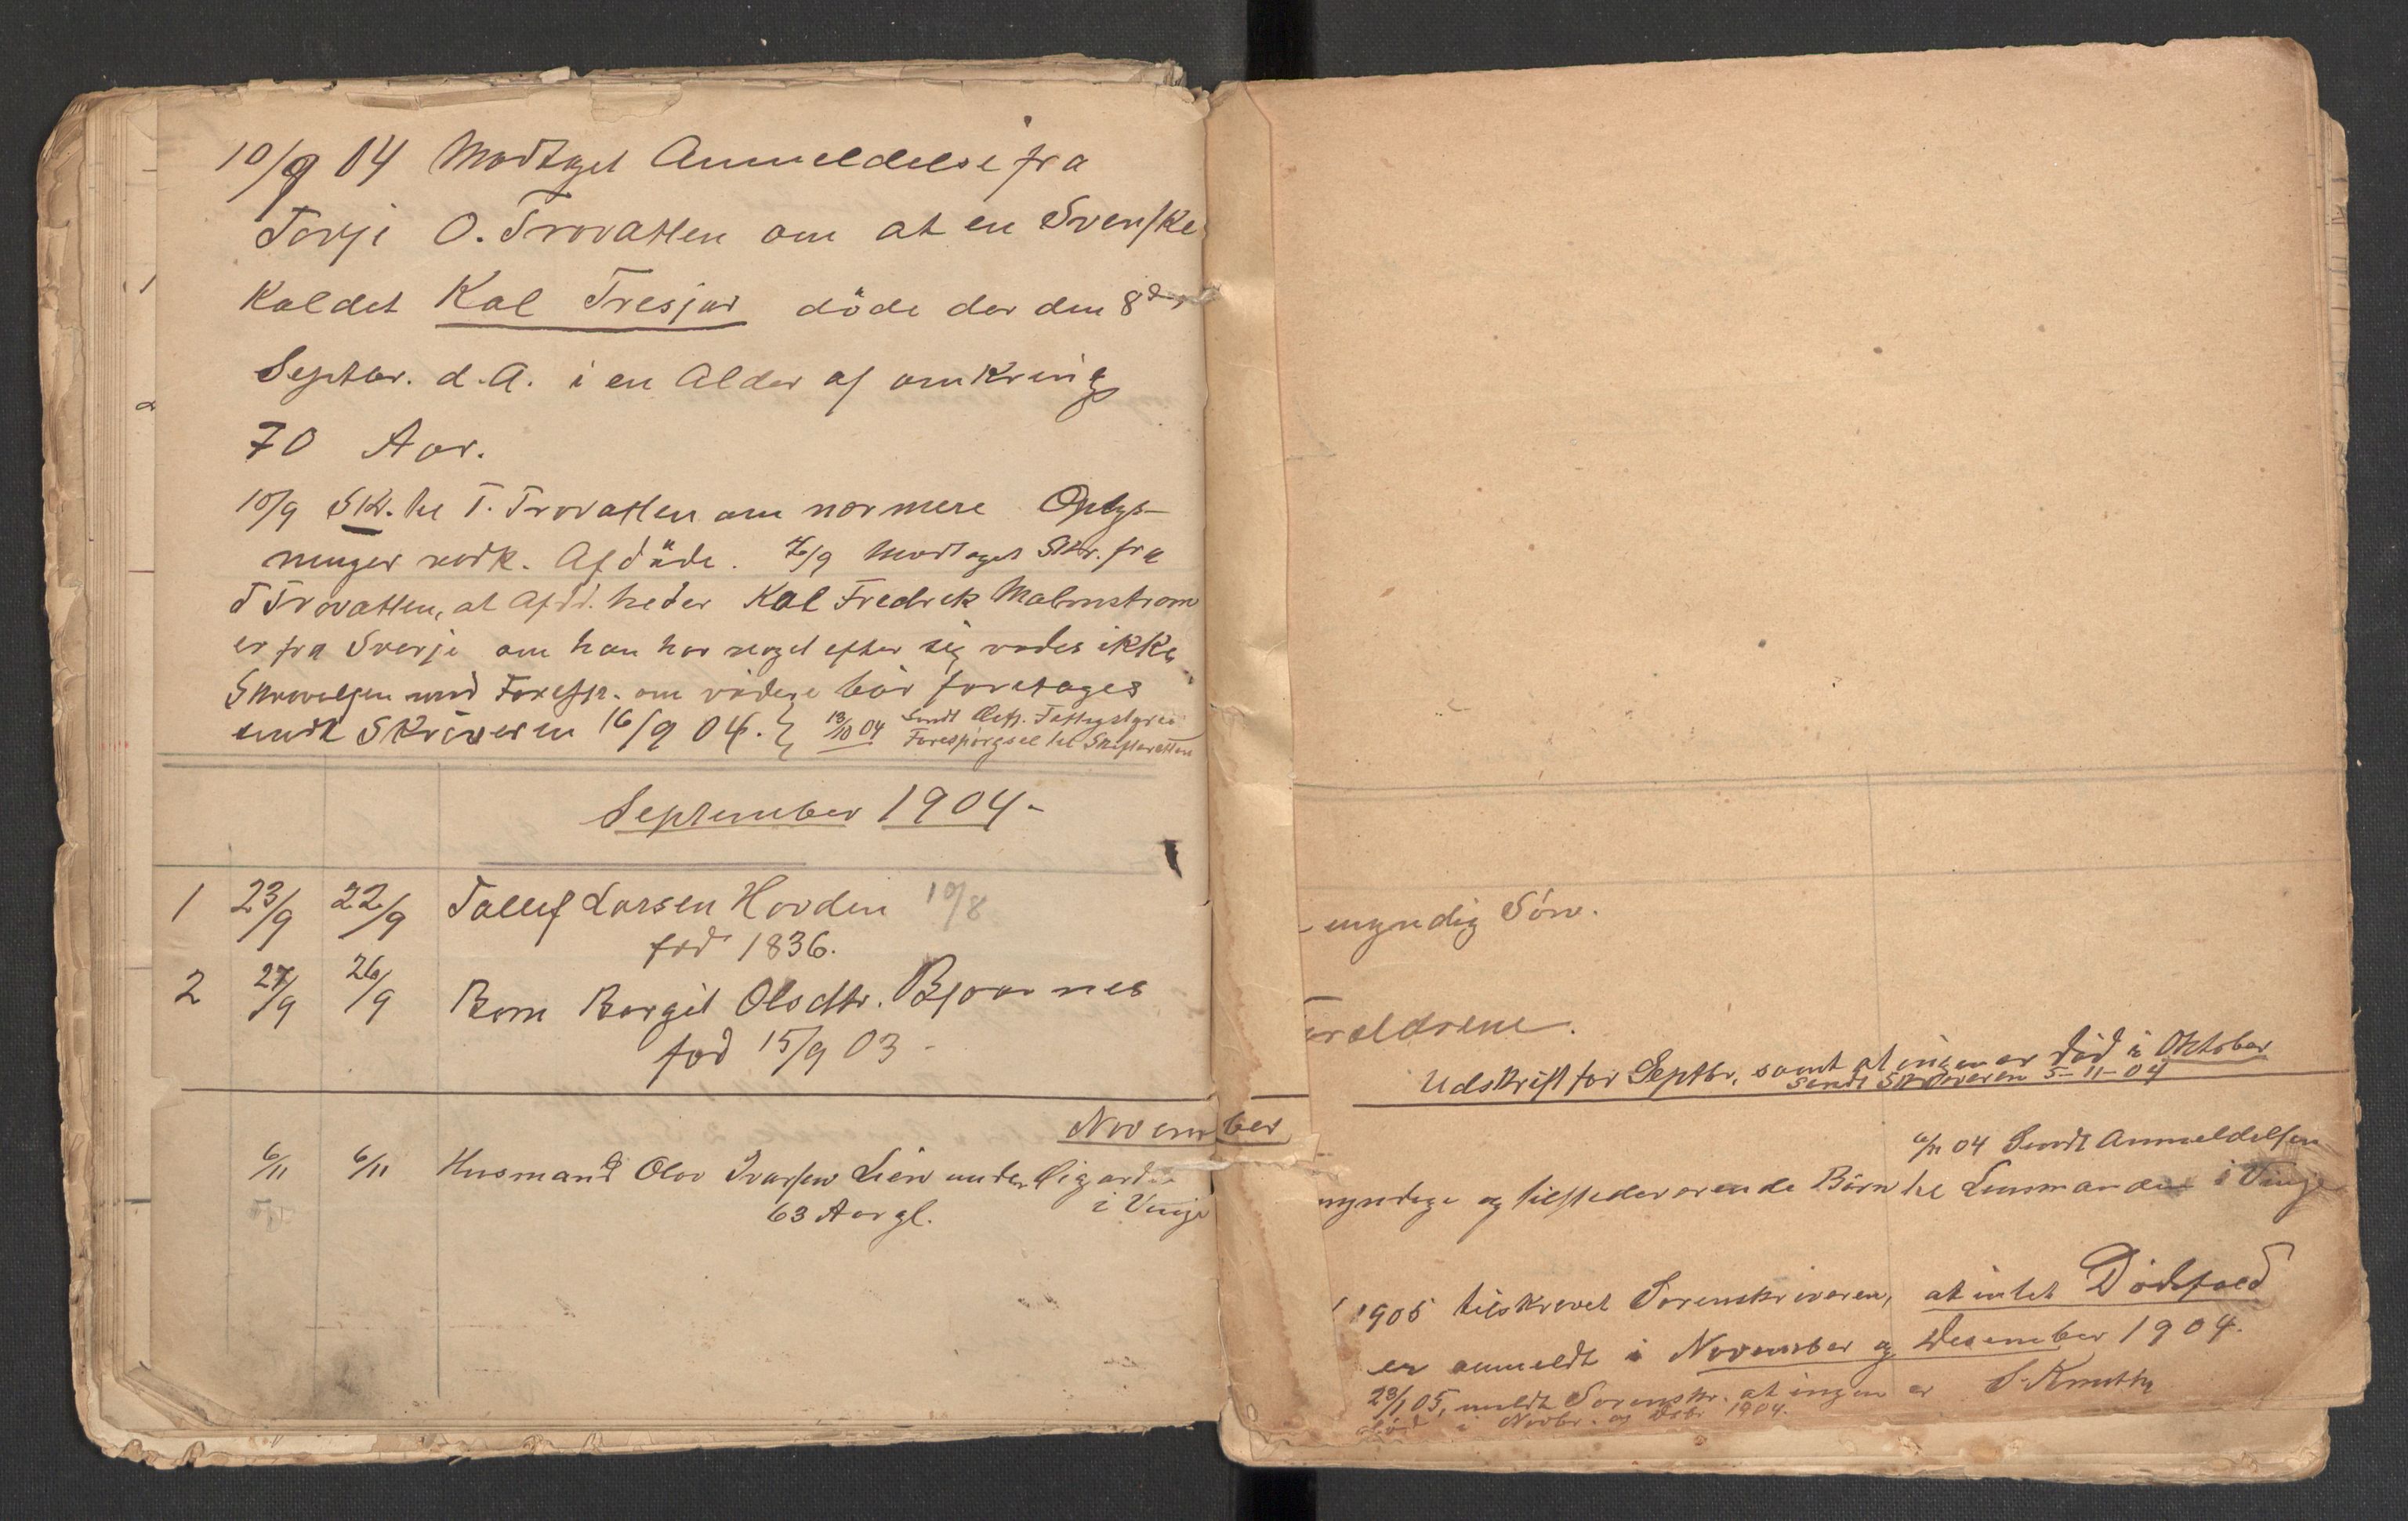 10/9 04 Modtaget Anmeldelse fra
Torje O. Trovatten om at en Svenske
Kaldet Kal Tresjar döde der den 8de
Septbr. d. A. i en Alder af omkring
70 Aar.
10/9 Skr. til T. Trovatten om nærmere Oplys-
ninger vedk. Afdöde. /9 Modtaget Skr. fra
T Trovatten, at Afdd. heder Kal Fredrek Malmstrøm
er fra Sverje om han har noget efter sig vides ikke
Skrivelsen med Foresp. om videre bör foretages
sendt Skriveren 16/9 04. } 13/10 04 Sendt Fattigstyre
Forespørgsel til Skifteretten
September 1904 -
1 23/9 22/9 Tallef Larsen Hovden 10/8
fød 1836.
2 27/9 26/9 Barn Borgit Olsdtr. Bjaannes
fød 15/9 03 -
November
6/11 6/11 Husmand Olav Ivarsen Lien under
63 Aar gl. i Vinje
myndig Sön.
oraldrene.
Udskrift for Septbr. samt at ingen er död i Oktober
sendt Skriveren 5-11-04
6/11 04 Sendt Anmeldelsen
myndige og tilstedeværende Börn til Lensmanden i Vinje
1905 tilskrevet Sorenskriveren, at intet Dödsfald
er anmeldt i November og Desember 1904.
23/1 05, meldt Sorenskr. at ingen er S. Knutsen
död i Novbr. og Dsbr 1904.